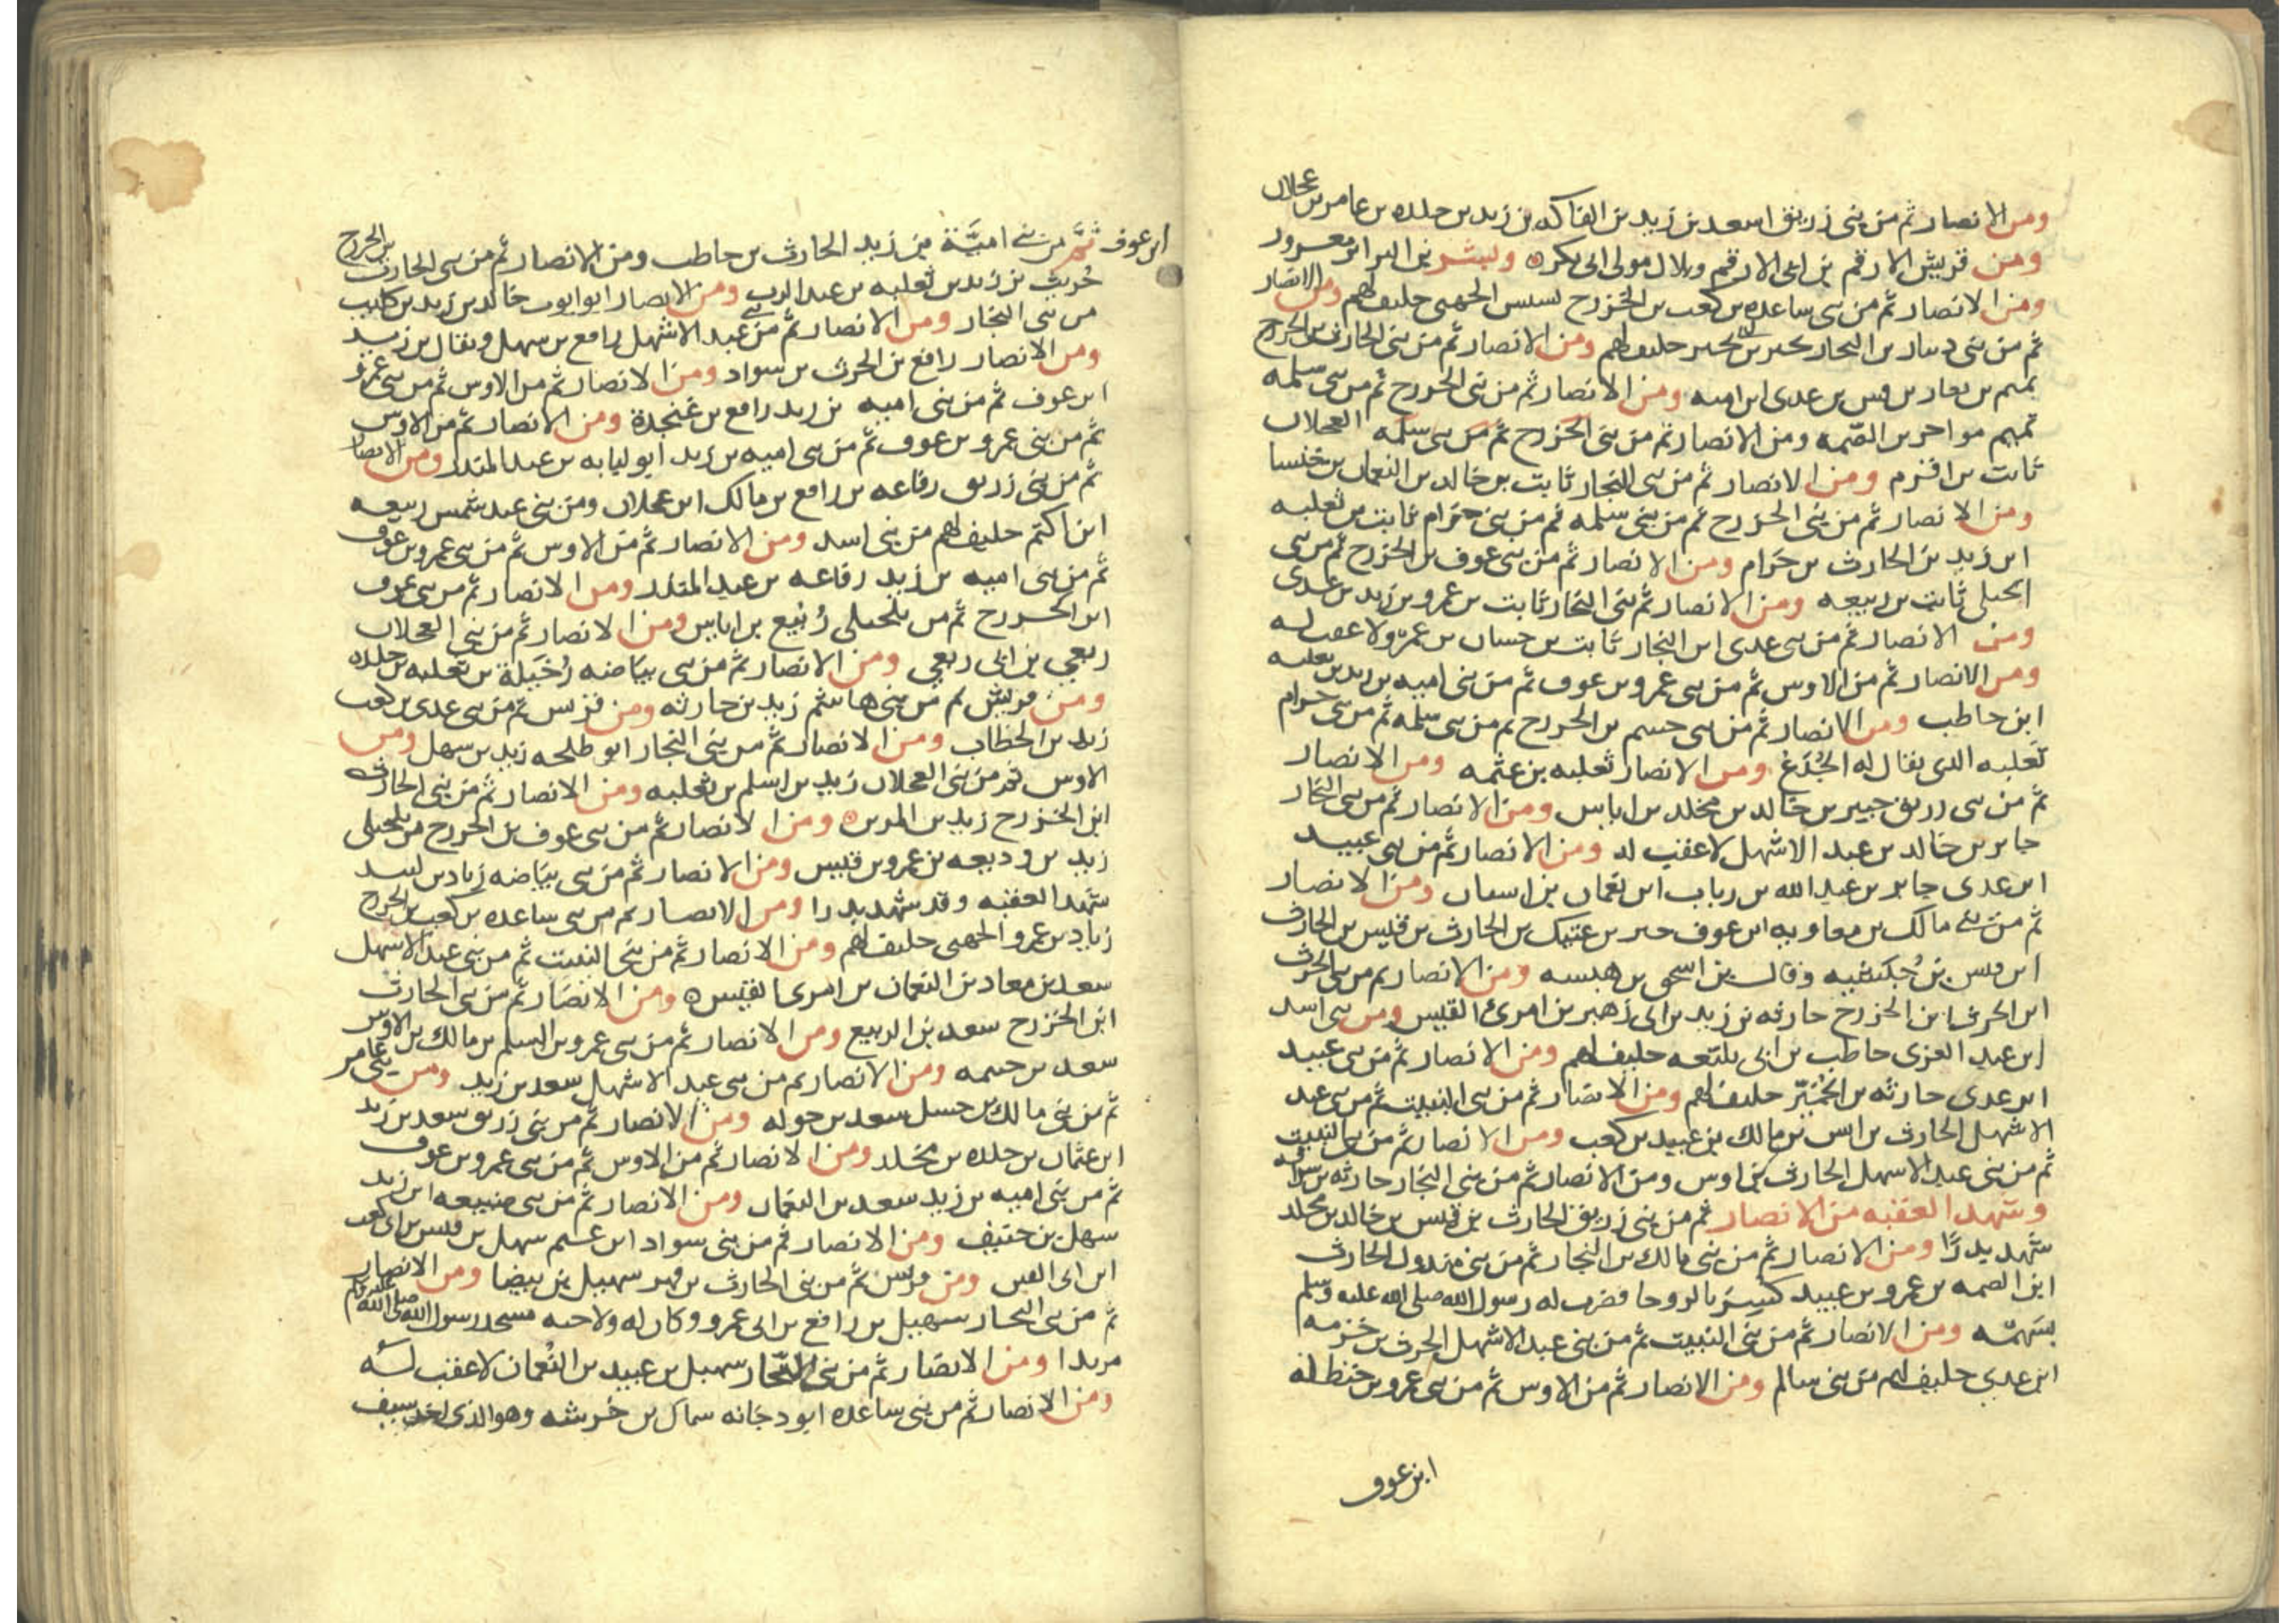 ومن الانصار ثم من بنى زريق اسعد بن زيد بن الفاكه بن زيد بن خلده بن عامر بن عجلان
ومن قريش الارقم بن ابى الارقم وبلال مولى ابى بكر ه وبشر بن البرا بن معرور
ومن الانصار ثم من بنى ساعده بن كعب بن الخزرج بسبس الجهنى حليف لهم ومن الانصار
ثم من بنى دينار بن النجار بحير بن ابى بحير حليف لهم ومن الانصار ثم من بنى الحارث بن الخزرج
تميم بن يعار بن قيس بن عدى ابن اميه ومن الانصار ثم من بنى الخزرج ثم من بنى سلمه
تميم مولى خراش بن الصمه ومن الانصار ثم من بنى الخزرج ثم من بنى سلمه العجلان
ثابت بن اقرم ومن الانصار ثم من بنى النجار ثابت بن خالد بن النعمان بن خنسا
ومن الانصار ثم من بنى الخزرج ثم من بنى سلمه ثم من بنى حرام ثابت بن ثعلبه
ابن زيد بن الحارث بن حرام ومن الانصار ثم من بنى عوف بن الخزرج ثم من بنى
الحبلى ثابت بن ربيعه ومن الانصار ثم بنى النجار ثابت بن عمرو بن زيد بن عدى
ومن الانصار ثم من بنى عدى ابن النجار ثابت بن حسان بن عمرو ولا عقب له
ومن الانصار ثم من الاوس ثم من بنى عمرو بن عوف ثم من بنى اميه بن زيد بن ثعلبه
ابن حاطب ومن الانصار ثم من بنى جشم بن الخزرج ثم من بنى سلمه ثم من بنى حرام
ثعلبه الذى يقال له الجذع ومن الانصار ثعلبه بن عنمه ومن الانصار
ثم من بنى زريق جبير بن خالد بن مخلد بن اياس ومن الانصار ثم من بنى النجار
جابر بن خالد بن عبد الاشهل لا عقب له ومن الانصار ثم من بنى عبيد
ابن عدى جابر بن عبد الله بن رياب ابن نعمان بن اسنان ومن الانصار
ثم من بنى مالك بن معاويه ابن عوف جبر بن عتيك بن الحارث بن قيس بن الحارث
ابن قيس بن حبشيه وقال ابن اسحق بن هيسه ومن الانصار ثم من بنى الحرث
ابن الحرث ابن الخزرج حارثه بن زيد بن ابى زهير بن امرئ القيس ومن بنى اسد
ابن عبد العزى حاطب بن ابى بلتعه حليف لهم ومن الانصار ثم من بنى عبيد
ابن عدى حارثه بن الحمير حليف لهم ومن الانصار ثم من بنى النبيت ثم من بنى عبد
الاشهل الحارث بن انس بن مالك بن عبيد بن كعب ومن الانصار ثم من بنى النبيت
ثم من بنى عبد الاشهل الحارث بن اوس ومن الانصار ثم من بنى النجار حارثه بن سراقه
وشهد العقبه من الانصار ثم من بنى زريق الحارث بن قيس بن خالد بن مخلد
شهد بدرًا ومن الانصار ثم من بنى مالك بن النجار ثم من بنى مبذول الحارث
ابن الصمه بن عمرو بن عبيد كسر بالروحا فضرب له رسول الله صلى الله عليه وسلم
بسهمه ومن الانصار ثم من بنى النبيت ثم من بنى عبد الاشهل الحرث بن خزمه
ابن عدى حليف لهم من بنى سالم ومن الانصار ثم من الاوس ثم من بنى عمرو بن حنظله
ابن عوف
ابن عوف ثم من بنى اميّة بن زيد الحارث بن حاطب ومن الانصار ثم من بنى الحارث بن الخزرج
حُريث بن زيد بن ثعلبه بن عبد الرب ومن الانصار ابو ايوب خالد بن زيد بن كليب
من بنى النجار ومن الانصار ثم من بنى عبد الاشهل رافع بن سهل ويقال بن زيد
ومن الانصار رافع بن الحرث بن سواد ومن الانصار ثم من الاوس ثم من بنى عمرو
ابن عوف ثم من بنى اميه بن زيد رافع بن عنجدة ومن الانصار ثم من الاوس
ثم من بنى عمرو بن عوف ثم من بنى اميه بن زيد ابو لبابه بن عبد المنذر ومن الانصار
ثم من بنى زريق رفاعه بن رافع بن مالك ابن عجلان ومن بنى عبد شمس ربيعه
ابن اكتم حليف لهم من بنى اسد ومن الانصار ثم من الاوس ثم من بنى عمرو بن عوف
ثم من بنى اميه بن زيد رفاعه بن عبد المنذر ومن الانصار ثم من بنى عوف
ابن الخزرج ثم من بلحبلى رُبيع بن اياس ومن الانصار ثم من بنى العجلان
ربعي بن ابى ربعي ومن الانصار ثم من بنى بياضه رُخيلة بن ثعلبه بن خلده
ومن قريش ثم من بنى هاشم زيد بن حارثه ومن قريش ثم من بنى عدى بن كعب
زيد بن الخطاب ومن الانصار ثم من بنى النجار ابو طلحه زيد بن سهل ومن
الاوس ثم من بنى العجلان زيد بن اسلم بن ثعلبه ومن الانصار ثم من بنى الحارث
ابن الخزرج زيد بن المزين ه ومن الانصار ثم من بنى عوف بن الخزرج من بلحبلى
زيد بن وديعه بن عمرو بن قيس ومن الانصار ثم من بنى بياضه زياد بن لبيد
شهد العقبه وقد شهد بدرا ومن الانصار ثم من بنى ساعده بن كعب بن الخزرج
زياد بن عمرو الجهنى حليف لهم ومن الانصار ثم من بنى النبيت ثم من بنى عبد الاشهل
سعد بن معاد بن النعمان بن امرى القيس ه ومن الانصار ثم من بنى الحارث
ابن الخزرج سعد بن الربيع ومن الانصار ثم من بنى عمرو بن السلم بن مالك بن الاوس
سعد بن خيثمه ومن الانصار ثم من بنى عبد الاشهل سعد بن زيد ومن بنى عامر
ثم من بنى مالك بن حسل سعد بن خوله ومن الانصار ثم من بنى زريق سعد بن زيد
ابن عثمان بن خلده بن مخلد ومن الانصار ثم من الاوس ثم من بنى عمرو بن عوف
ثم من بنى اميه بن زيد سعد بن النعمان ومن الانصار ثم من بنى ضبيعه ابن زيد
سهل بن حنيف ومن الانصار ثم من بنى سواد ابن غنم سهل بن قيس بن ابى كعب
ابن ابى القين ومن قريش ثم من بنى الحارث بن فهر سهيل بن بيضا ومن الانصار
ثم من بنى النجار سهيل بن رافع بن ابى عمرو وكان له ولاخيه مسجد رسول الله صلى الله عليه وسلم
مربدا ومن الانصار ثم من بنى النجار سهيل بن عبيد بن النعمان لا عقب له
ومن الانصار ثم من بنى ساعده ابو دجانه سماك بن خُرشه وهو الذى اخذ سيف